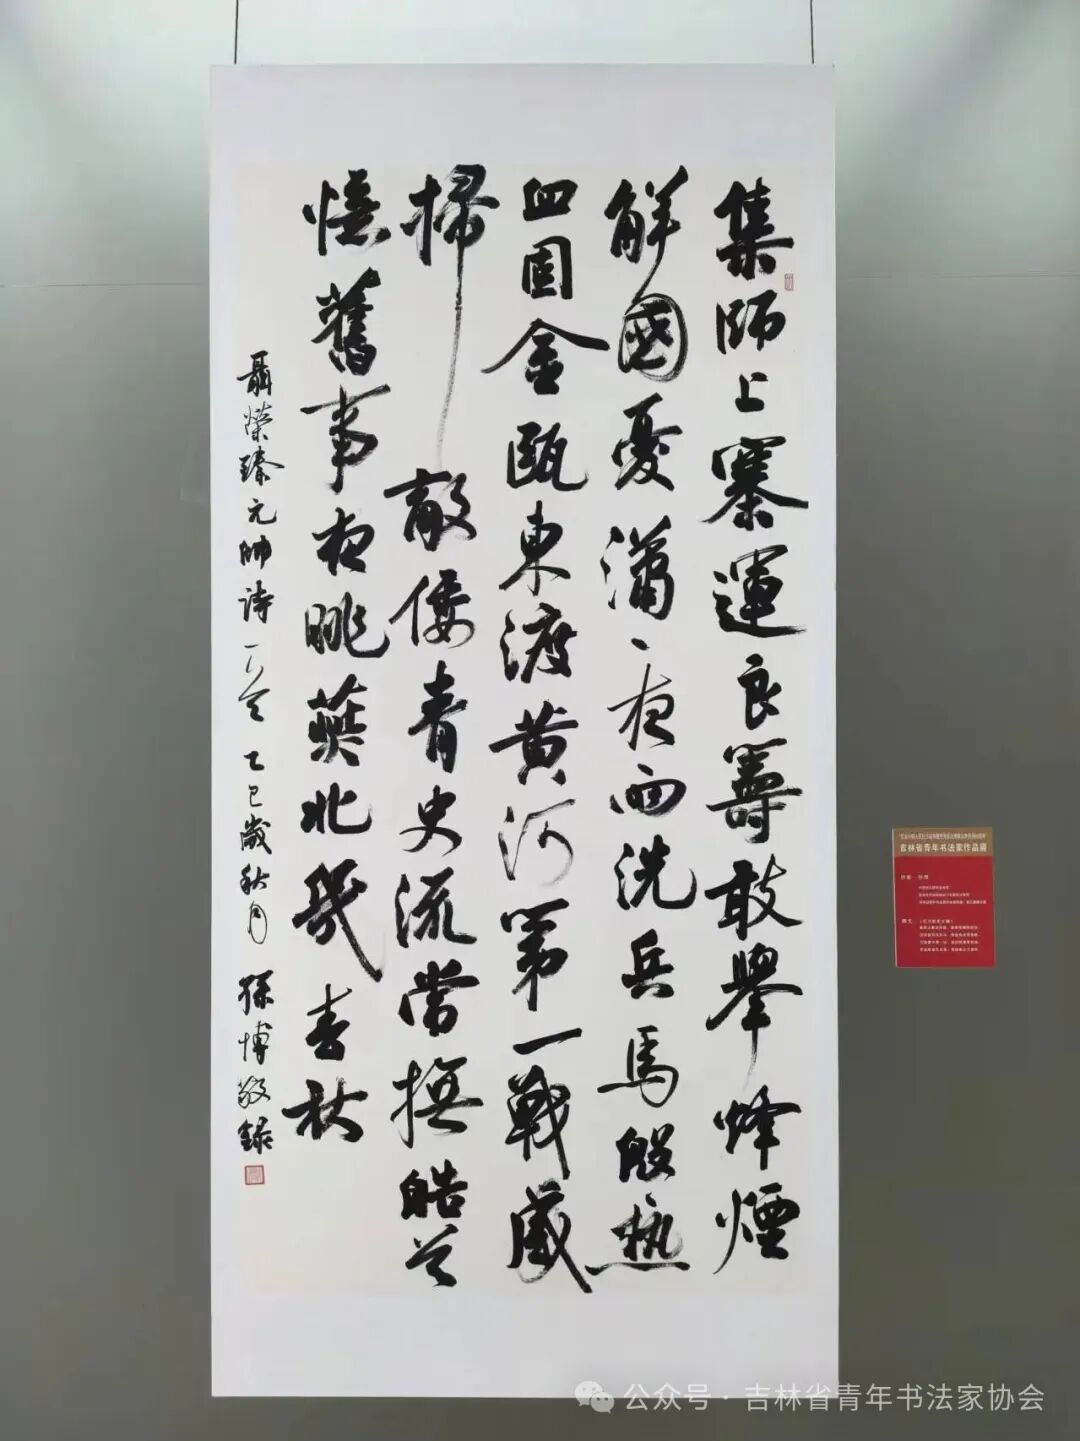 集師上寨運良籌敢舉烽煙
解國憂瀟〻夜雨洗兵馬殷熱
血固金甌東渡黃河第一戰威
掃敵倭青史流常撫皓首
憶舊事夜眺燕北幾春秋
聶榮臻元帥詩一首 乙巳歲秋月 孫博敬録
吉林省青年书法家作品展
公众号 · 吉林省青年书法家协会